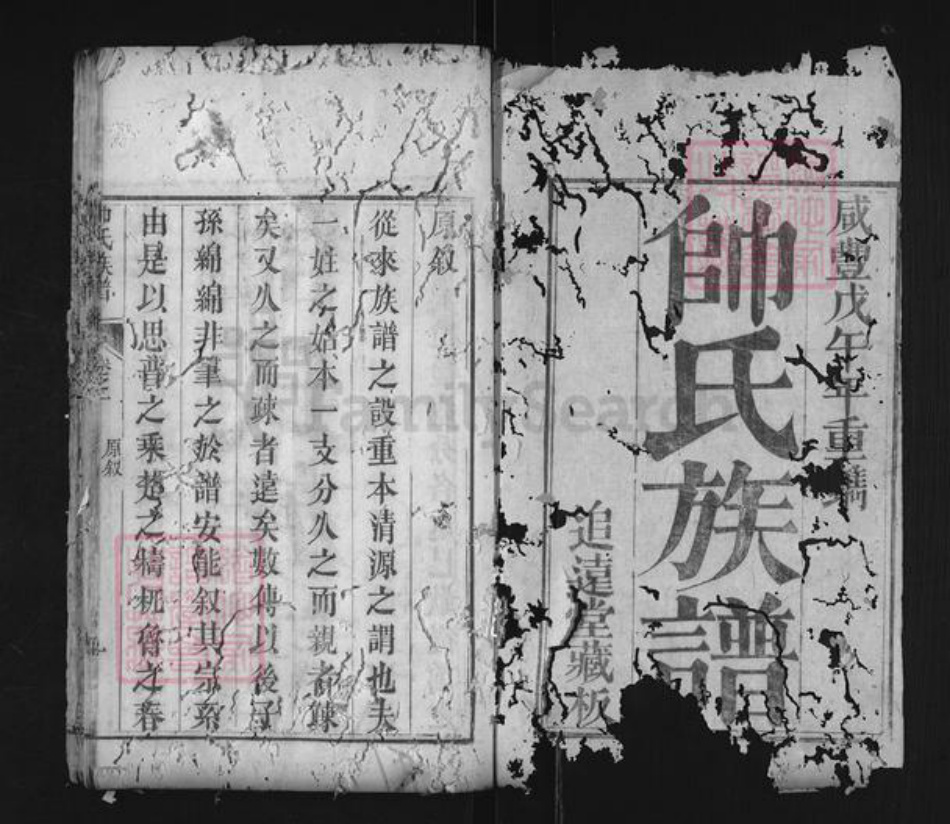 咸豐戊午年重鐫
帥氏族譜
追遠堂藏板
原叙
從來族譜之設重本清源之謂也夫
一姓之始本一支分久之而親者踈
矣又久之而踈者遠矣數傳以後子
孫綿綿非筆之於譜安能叙其宗系
由是以思晋之乘楚之檮杌魯之春
帥氏族譜
卷之
原叙
FamilySearch